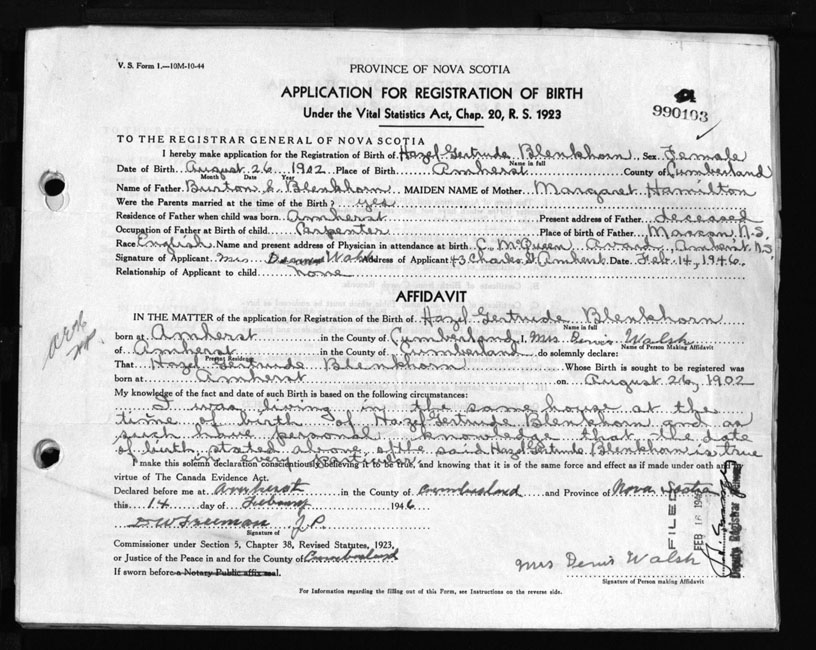 V. S. Form 1.—10M-10-44
PROVINCE OF NOVA SCOTIA
APPLICATION FOR REGISTRATION OF BIRTH
Under the Vital Statistics Act, Chap. 20, R. S. 1923
990103
TO THE REGISTRAR GENERAL OF NOVA SCOTIA
I hereby make application for the Registration of Birth of Hazel Gertrude Blenkhorn Sex Female
Name in full
Date of Birth August 26 1902 Place of Birth Amherst County of Cumberland
Month Date Year
Name of Father Burton C. Blenkhorn MAIDEN NAME of Mother Margaret Hamilton
Were the Parents married at the time of the Birth? yes
Residence of Father when child was born Amherst Present address of Father deceased
Occupation of Father at Birth of child Carpenter Place of birth of Father N.S.
Race English Name and present address of Physician in attendance at birth C. McQueen Amherst N.S
Signature of Applicant Mrs Denis Walsh Address of Applicant 43 Charles St Amherst Date Feb. 14, 1946
Relationship of Applicant to child none
AFFIDAVIT
IN THE MATTER of the application for Registration of the Birth of Hazel Gertrude Blenkhorn
Name in full
born at Amherst in the County of Cumberland I, Mrs Denis Walsh
Name of Person Making Affidavit
of Amherst Cumberland do solemnly declare:
Present Residence
That Hazel Gertrude Blenkhorn Whose Birth is sought to be registered was
born at Amherst on August 26, 1902
My knowledge of the fact and date of such Birth is based on the following circumstances:
I was living in the same house at the
time of birth of Hazel Gertrude Blenkhorn and as
such have personal knowledge that the date
of birth stated above of the said Hazel Gertrude Blenkhorn is true
in every particular
I make this solemn declaration conscientiously believing it to be true, and knowing that it is of the same force and effect as if made under oath and by
virtue of The Canada Evidence Act.
Declared before me at Amherst in the County of Cumberland and Province of Nova Scotia
this 14 day of February 1946
Freeman J.P.
Signature of
Commissioner under Section 5, Chapter 38, Revised Statutes, 1923,
or Justice of the Peace in and for the County of Cumberland
If sworn before a Notary Public affix seal.
Mrs Denis Walsh
Signature of Person making Affidavit
FILED
FEB 18 1946
Deputy Registrar General
For information regarding the filling out of this Form, see Instructions on the reverse side.